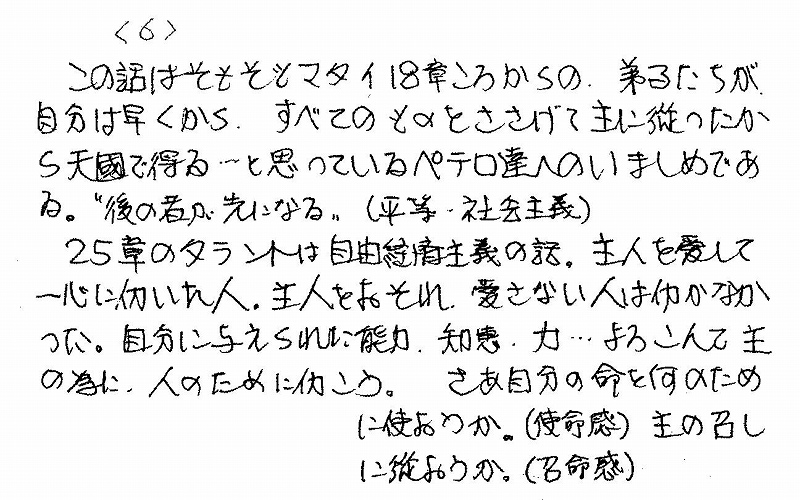 <6>
この話はそもそもマタイ18章ころからの、弟子たちが、
自分は早くから、すべてのものをささげて主に従ったか
ら天國で得る…と思っているペテロ達へのいましめであ
る。"後の者が先になる"(平等・社会主義)
25章のタラントは自由経済主義の話。主人を愛して
一心に仂いた人。主人をおそれ、愛さない人は仂かなか
った。自分に与えられた能力、知恵、力…よろこんで主
の為に、人のために仂こう。 さあ自分の命を何のため
に使おうか。(使命感) 主の召し
に従おうか。(召命感)